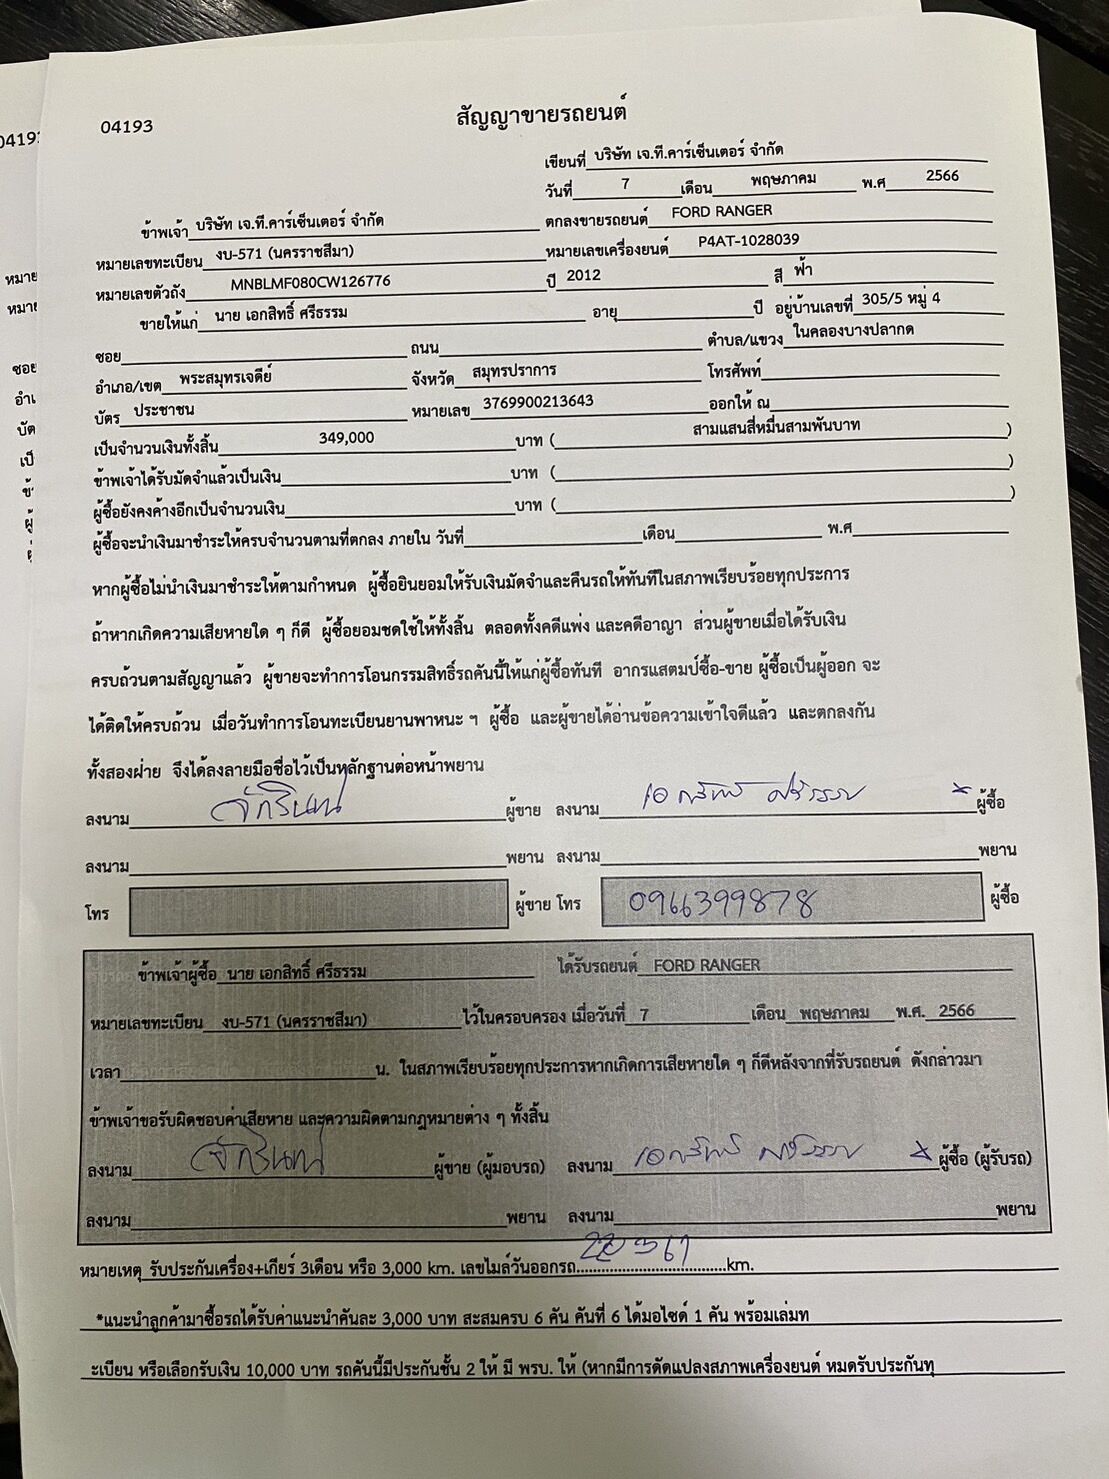 04193
สัญญาขายรถยนต์
เขียนที่ บริษัท เจ.ที.คาร์เซ็นเตอร์ จำกัด
วันที่ 7 เดือน พฤษภาคม พ.ศ 2566
ข้าพเจ้า บริษัท เจ.ที.คาร์เซ็นเตอร์ จำกัด ตกลงขายรถยนต์ FORD RANGER
หมายเลขทะเบียน งบ-571 (นครราชสีมา) หมายเลขเครื่องยนต์ P4AT-1028039
หมายเลขตัวถัง MNBLMF080CW126776 ปี 2012 สี ฟ้า
ขายให้แก่ นาย เอกสิทธิ์ ศรีธรรม อายุ ปี อยู่บ้านเลขที่ 305/5 หมู่ 4
ซอย ถนน ตำบล/แขวง ในคลองบางปลากด
อำเภอ/เขต พระสมุทรเจดีย์ จังหวัด สมุทรปราการ โทรศัพท์
บัตร ประชาชน หมายเลข 3769900213643 ออกให้ ณ
เป็นจำนวนเงินทั้งสิ้น 349,000 บาท ( สามแสนสี่หมื่นสามพันบาท )
ข้าพเจ้าได้รับมัดจำแล้วเป็นเงิน บาท ( )
ผู้ซื้อยังคงค้างอีกเป็นจำนวนเงิน บาท ( )
ผู้ซื้อจะนำเงินมาชำระให้ครบจำนวนตามที่ตกลง ภายใน วันที่ เดือน พ.ศ
หากผู้ซื้อไม่นำเงินมาชำระให้ตามกำหนด ผู้ซื้อยินยอมให้รับเงินมัดจำและคืนรถให้ทันทีในสภาพเรียบร้อยทุกประการ
ถ้าหากเกิดความเสียหายใด ๆ ก็ดี ผู้ซื้อยอมชดใช้ให้ทั้งสิ้น ตลอดทั้งคดีแพ่ง และคดีอาญา ส่วนผู้ขายเมื่อได้รับเงิน
ครบถ้วนตามสัญญาแล้ว ผู้ขายจะทำการโอนกรรมสิทธิ์รถคันนี้ให้แก่ผู้ซื้อทันที อากรแสตมป์ซื้อ-ขาย ผู้ซื้อเป็นผู้ออก จะ
ได้ติดให้ครบถ้วน เมื่อวันทำการโอนทะเบียนยานพาหนะ ฯ ผู้ซื้อ และผู้ขายได้อ่านข้อความเข้าใจดีแล้ว และตกลงกัน
ทั้งสองฝ่าย จึงได้ลงลายมือชื่อไว้เป็นหลักฐานต่อหน้าพยาน
ลงนาม จักรินทร์ ผู้ขาย ลงนาม เอกสิทธิ์ ศรีธรรม ผู้ซื้อ
ลงนาม พยาน ลงนาม พยาน
โทร ผู้ขาย โทร 0966399878 ผู้ซื้อ
ข้าพเจ้าผู้ซื้อ นาย เอกสิทธิ์ ศรีธรรม ได้รับรถยนต์ FORD RANGER
หมายเลขทะเบียน งบ-571 (นครราชสีมา) ไว้ในครอบครอง เมื่อวันที่ 7 เดือน พฤษภาคม พ.ศ. 2566
เวลา น. ในสภาพเรียบร้อยทุกประการหากเกิดการเสียหายใด ๆ ก็ดีหลังจากที่รับรถยนต์ ดังกล่าวมา
ข้าพเจ้าขอรับผิดชอบค่าเสียหาย และความผิดตามกฎหมายต่าง ๆ ทั้งสิ้น
ลงนาม จักรินทร์ ผู้ขาย (ผู้มอบรถ) ลงนาม เอกสิทธิ์ ศรีธรรม ผู้ซื้อ (ผู้รับรถ)
ลงนาม พยาน ลงนาม พยาน
หมายเหตุ รับประกันเครื่อง+เกียร์ 3เดือน หรือ 3,000 km. เลขไมล์วันออกรถ....................................km.
*แนะนำลูกค้ามาซื้อรถได้รับค่าแนะนำคันละ 3,000 บาท สะสมครบ 6 คัน คันที่ 6 ได้มอไซด์ 1 คัน พร้อมเล่มท
ะเบียน หรือเลือกรับเงิน 10,000 บาท รถคันนี้มีประกันชั้น 2 ให้ มี พรบ. ให้ (หากมีการดัดแปลงสภาพเครื่องยนต์ หมดรับประกันทุ